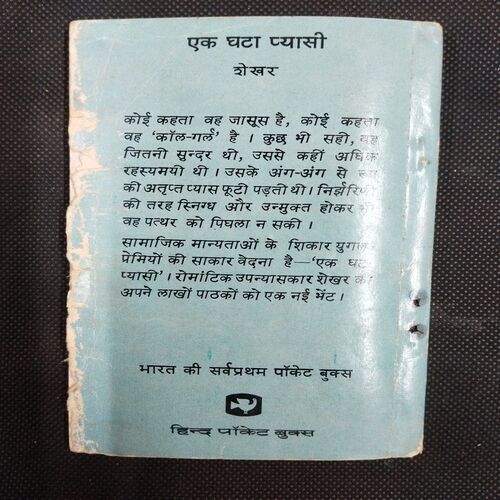 एक घटा प्यासी
शेखर
कोई कहता वह जासूस है, कोई कहता
वह 'कॉल-गर्ल' है । कुछ भी सही, वह
जितनी सुन्दर थी, उससे कहीं अधिक
रहस्यमयी थी । उसके अंग-अंग से रूप
की अतृप्त प्यास फूटी पड़ती थी। निर्झरिणी
की तरह स्निग्ध और उन्मुक्त होकर भी
वह पत्थर को पिघला न सकी ।
सामाजिक मान्यताओं के शिकार युगल
प्रेमियों की साकार वेदना है—'एक घटा
प्यासी' । रोमांटिक उपन्यासकार शेखर की
अपने लाखों पाठकों को एक नई भेंट ।
भारत की सर्वप्रथम पॉकेट बुक्स
हिन्द पॉकेट बुक्स